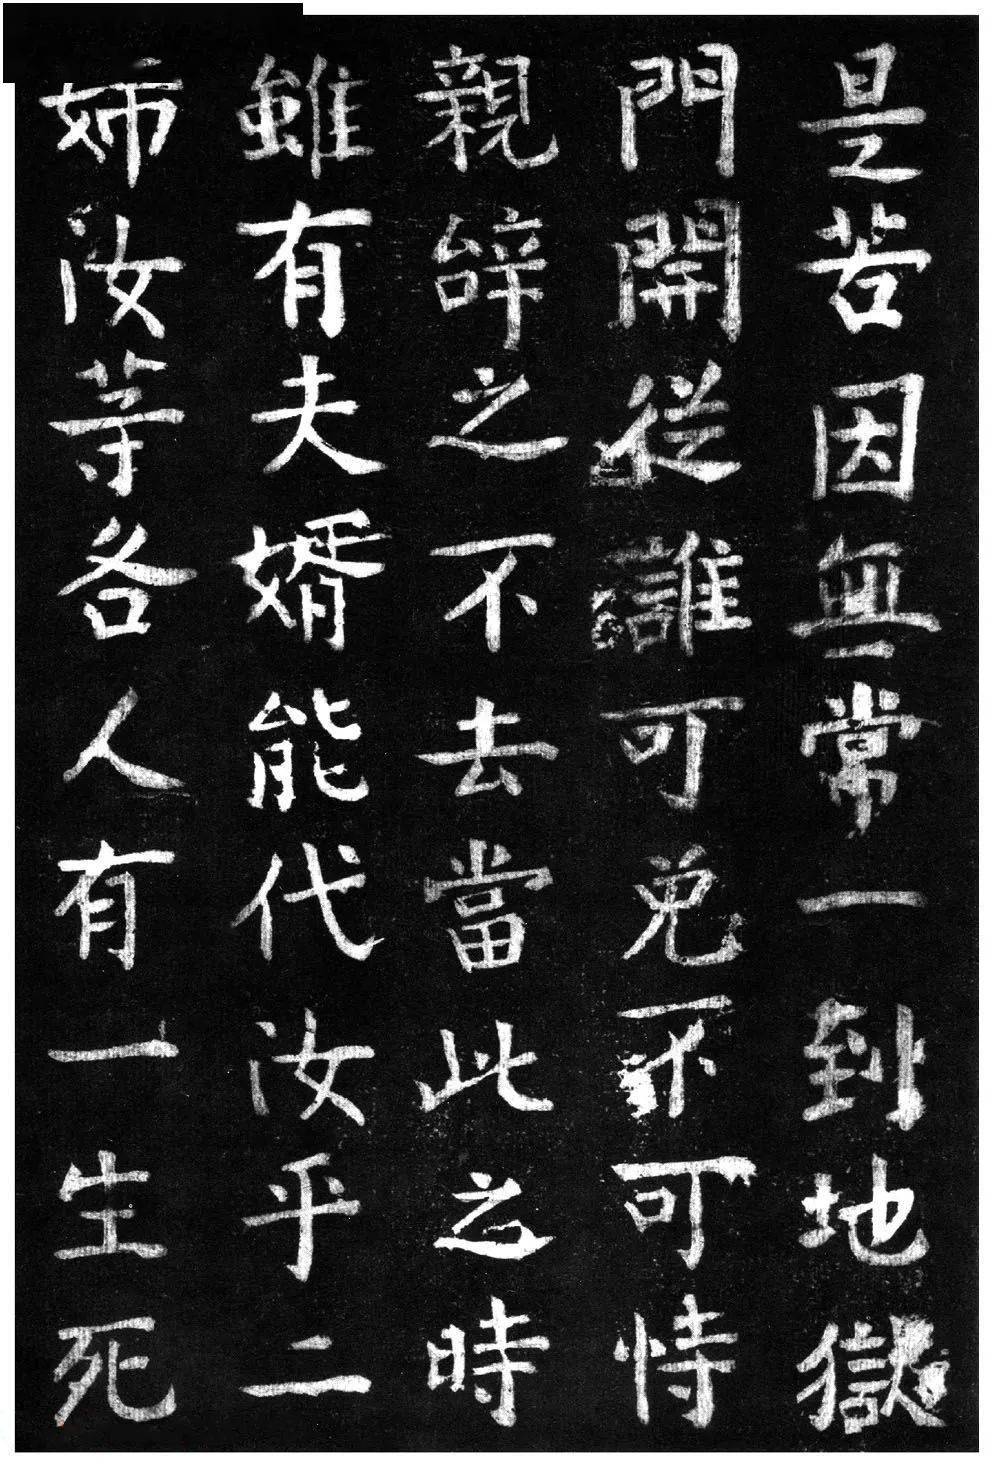 是苦因無常一到地獄
門開從誰可免不可恃
親辝之不去當此之時
雖有夫婿能代汝乎二
姉汝等各人有一生死